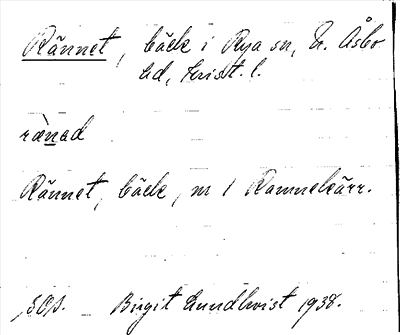 Rännet, bäck i Rya sn, N. Åsbo
hd, Krist. l.
rænad
Rännet, bäck, nr 1 Ramnekärr.
Birgit Lundkvist 1938.